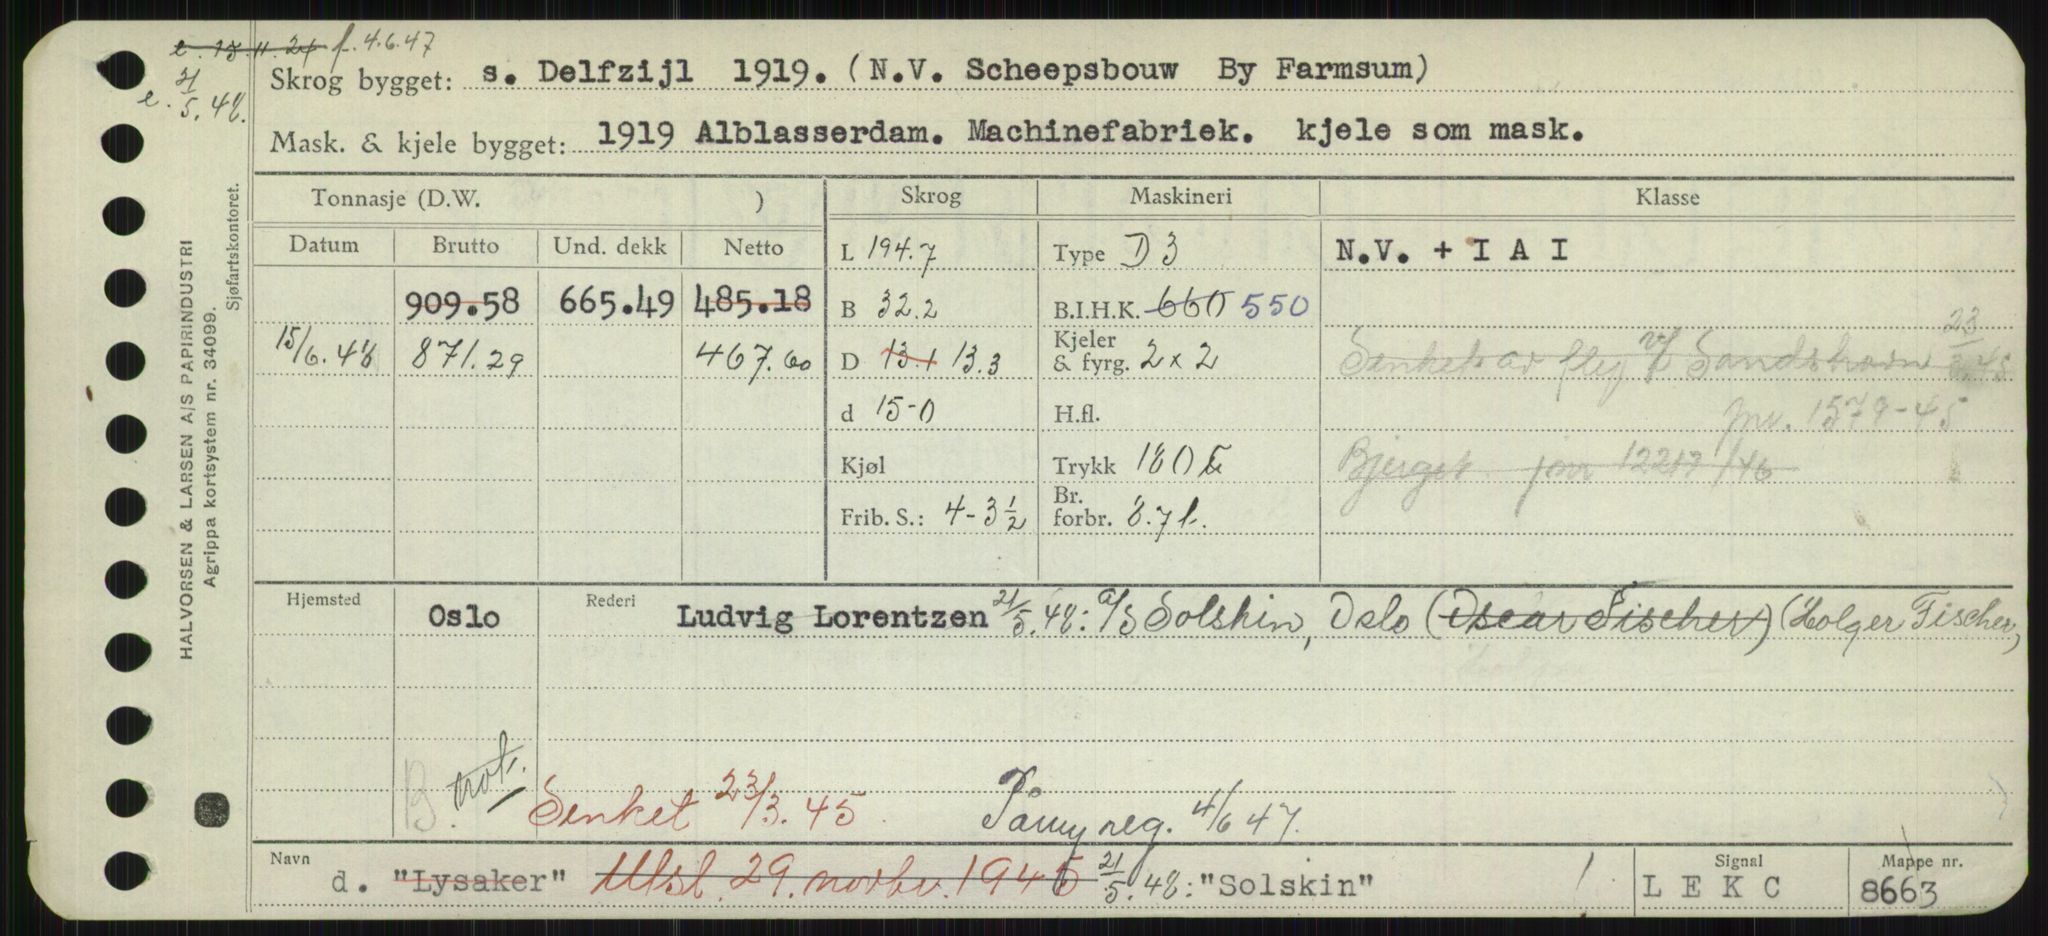 e. 13.11.24 f. 4.6.47
e. 21/5.48.
Skrog bygget: s. Delfzijl 1919. (N.V. Scheepsbouw By Farmsum)
Mask. & kjele bygget: 1919 Alblasserdam. Machinefabriek. kjele som mask.
HALVORSEN & LARSEN A/S PAPIRINDUSTRI
Agrippa kortsystem nr. 34099.
Sjøfartskontoret.
Tonnasje (D.W. ) Skrog Maskineri Klasse
Datum Brutto Und. dekk Netto L 194.7 Type D 3 N.V. + I A I
909.58 665.49 485.18 B 32.2 B.I.H.K. 660 550
15/6.48 871.29 467.60 D 13.1 13.3 Kjeler & fyrg. 2 x 2 Senket av fly v/ Sandshavn 23/3.45
d 15-0 H.fl. jnr. 1579-45
Kjøl Trykk 180 Bjerget jnr 12217/46
Frib. S.: 4-3½ Br. forbr. 8.7 t.
Hjemsted Oslo Rederi Ludvig Lorentzen 21/5.48: A/S Solskin, Oslo (Oscar Fischer) (Holger Fischer,
B. not.
Senket 23/3.45 På ny reg. 4/6 47.
Navn d. "Lysaker" Utsl. 29. novbr. 1945 21/5.48: "Solskin"
Signal L E K C
Mappe nr. 8663